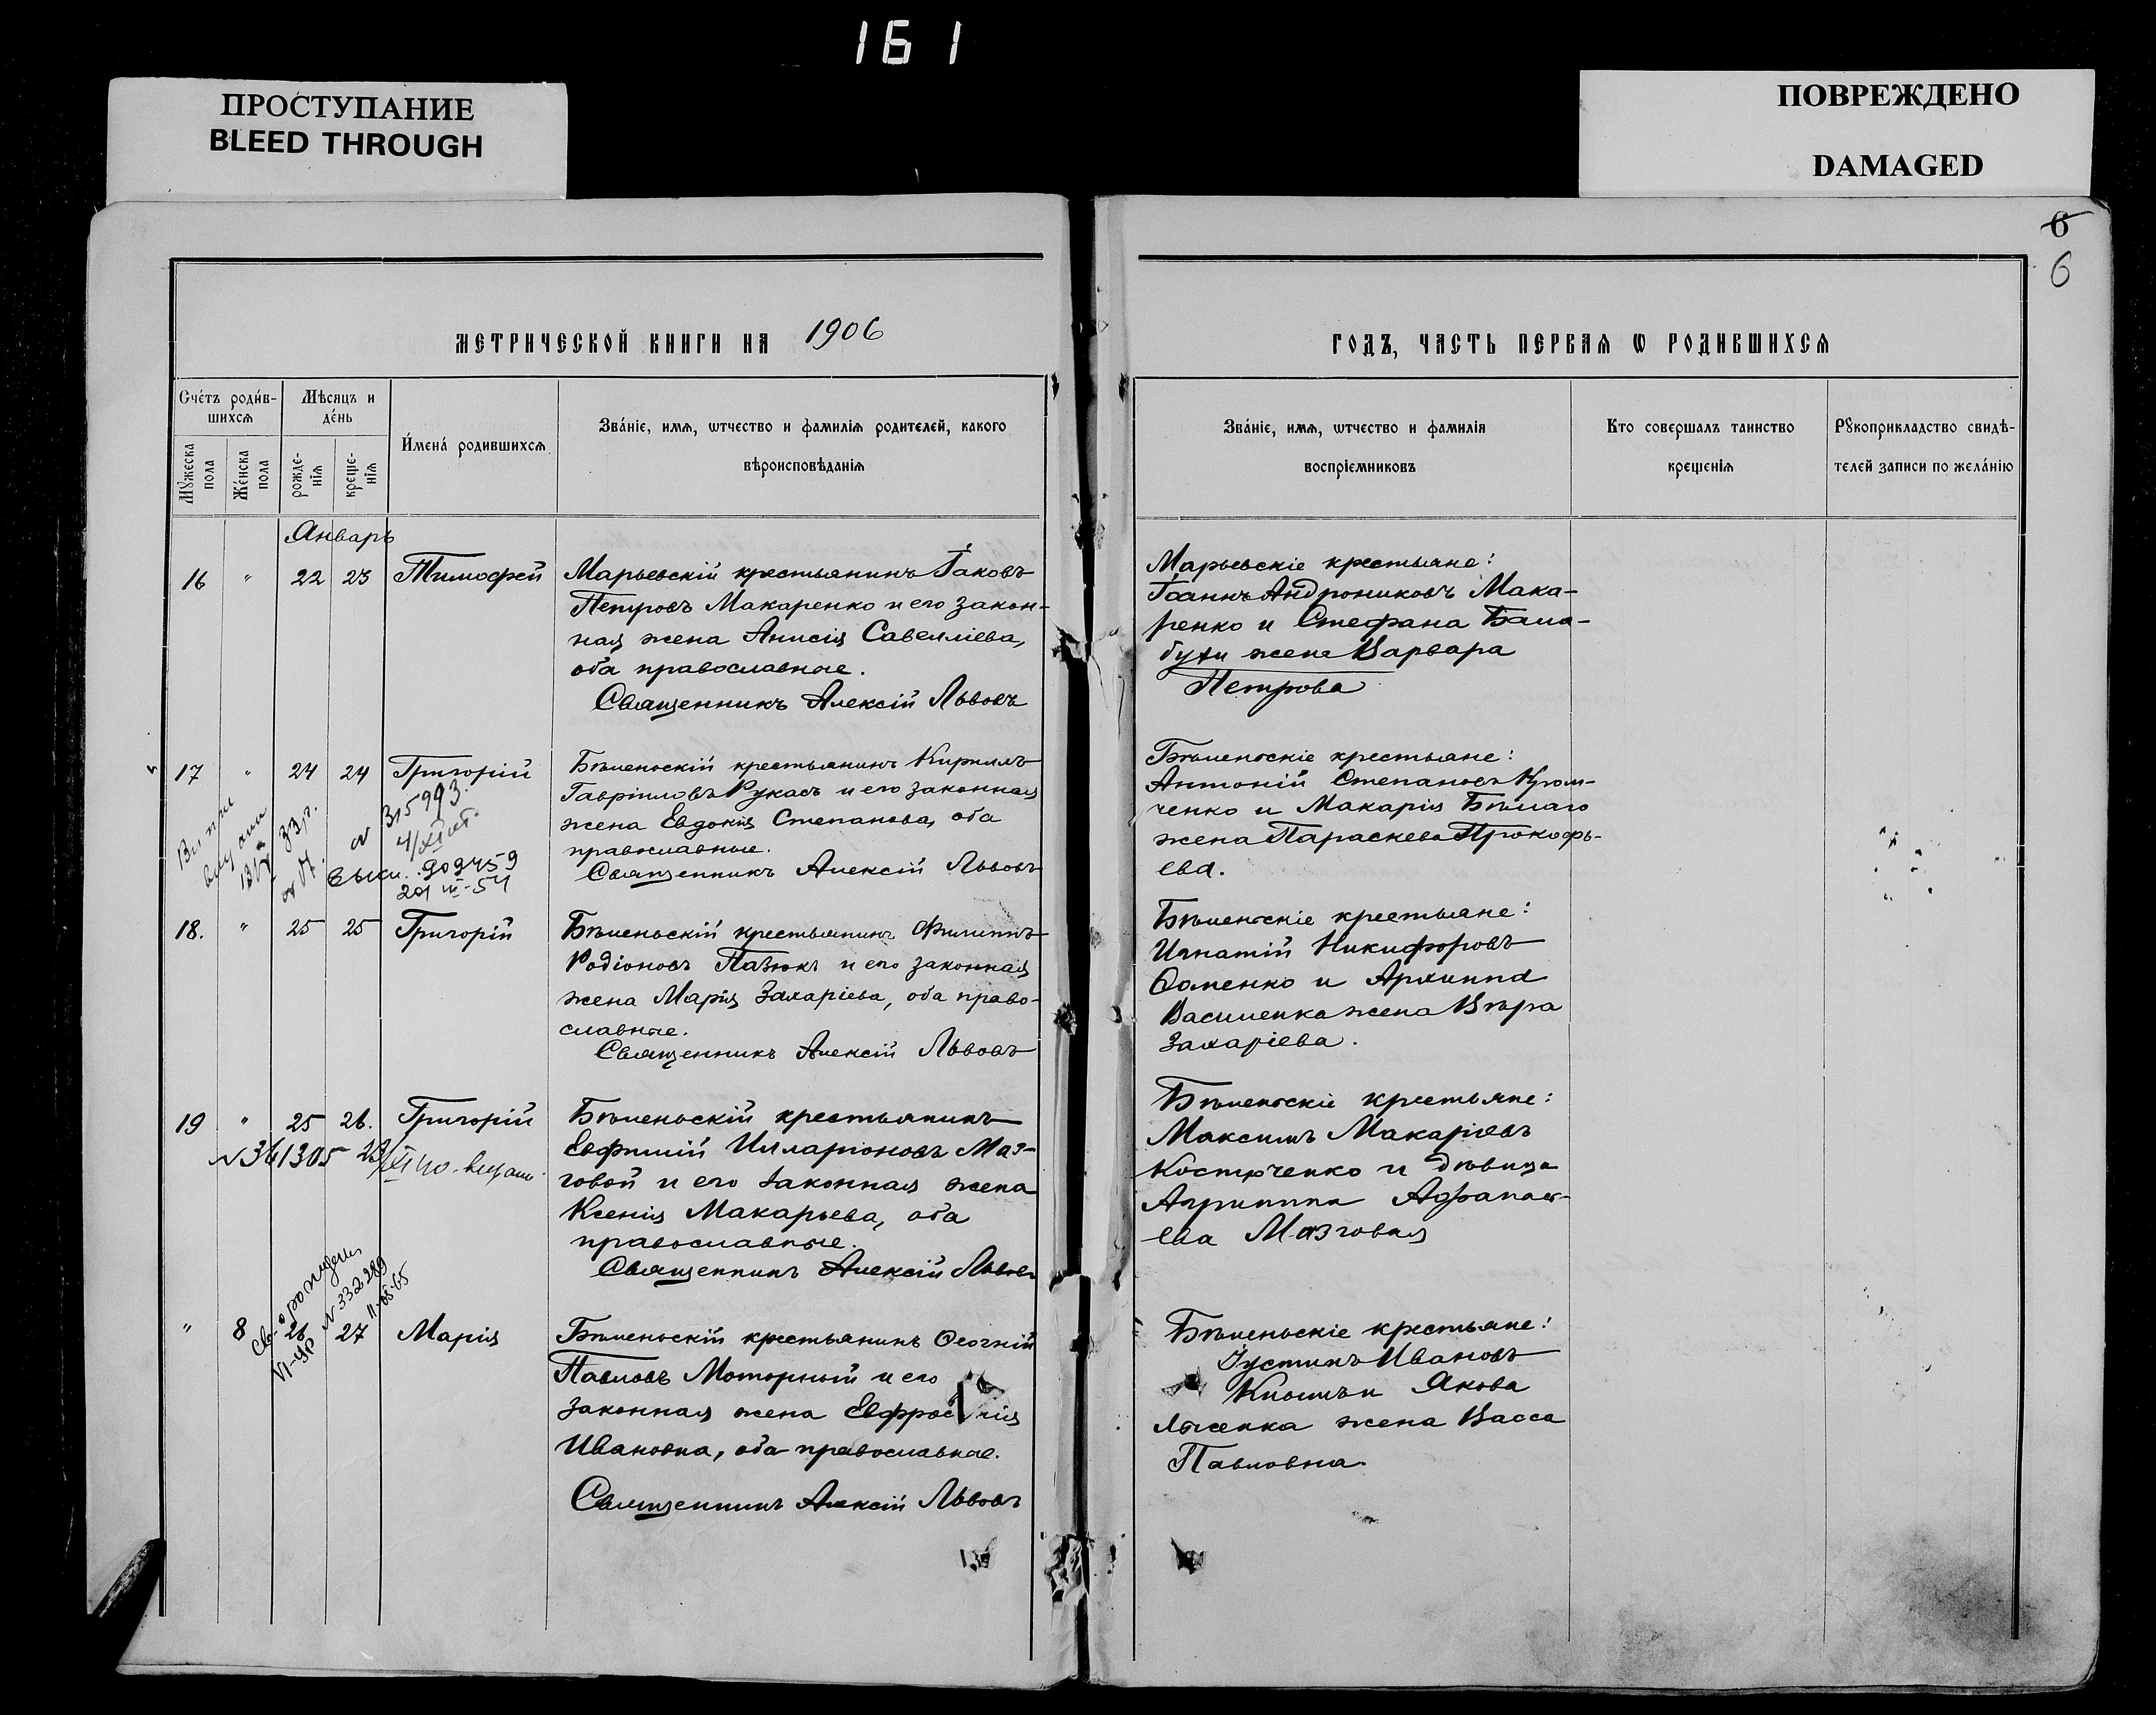 161
ПРОСТУПАНИЕ
BLEED THROUGH
ПОВРЕЖДЕНО
DAMAGED
6
6
МЕТРИЧЕСКОЙ КНИГИ НА 1906
ГОДЪ, ЧАСТЬ ПЕРВАЯ Ѡ РОДИВШИХСЯ
Счéтъ роди́в-
шихсѧ
Мѣсяцъ и
де́нь
Мꙋжеска
пола
Же́нска
пола
рожде-
нїѧ
креще-
нїѧ
И́мена́ родившихсѧ
Зва́нїе, имѧ, ѡтчество и фамилїѧ родителей, какого
вѣроисповѣданїѧ
Зва́нїе, имѧ, ѡтчество и фамилїѧ
воспрїемниковъ
Кто совершалъ таинство
крещенїѧ
Рꙋкоприкладство свидѣ-
телей записи по жела́нїю
Январь
16 " 22 23 Тимофей
Марьевскій крестьянинъ Іаковъ
Петровъ Макаренко и его закон-
ная жена Анисія Савелліева,
оба православные.
Священникъ Алексій Львовъ
Марьевскіе крестьяне:
Іоаннъ Андрониковъ Мака-
ренко и Стефана
жена Варвара
Петрова
17 " 24 24 Григорій
Бѣленьскій крестьянинъ Кириллъ
Гавріиловъ Рукасъ и его законная
жена Евдокія Степанова, оба
православные.
Священникъ Алексій Львовъ
Бѣленьскіе крестьяне:
Антоній Степановъ
ченко и Макарія Бѣлаго
жена Параскева Прокофь-
ева.
315993
909459
201 III-54
18. " 25 25 Григорій
Бѣленьскій крестьянинъ Филиппъ
Родіоновъ Пазюкъ и его законная
жена Марія Захаріева, оба право-
славные.
Священникъ Алексій Львовъ
Бѣленьскіе крестьяне:
Игнатій Никифоровъ
Ѳоменко и Архиппа
Василенка жена Вѣра
Захаріева.
19 " 25 26. Григорій
Бѣленьскій крестьянинъ
Евфимій Илларіоновъ Маз-
говой и его законная жена
Ксенія Макарьева, оба
православные.
Священникъ Алексій Львовъ
Бѣленьскіе крестьяне:
Максимъ Макаріевъ
Костюченко и дѣвица
Агриппина Афанась-
ева Мазговая
N 361305
N 332289
11-08-65
" 8 26 27 Марія
Бѣленьскій крестьянинъ Ѳеогній
Павловъ Моторный и его
законная жена Евфрос нія
Ивановна, оба православные.
Священникъ Алексій Львовъ
Бѣленьскіе крестьяне:
Іустинъ Ивановъ
и Якова
Лысенка жена Васса
Павловна.